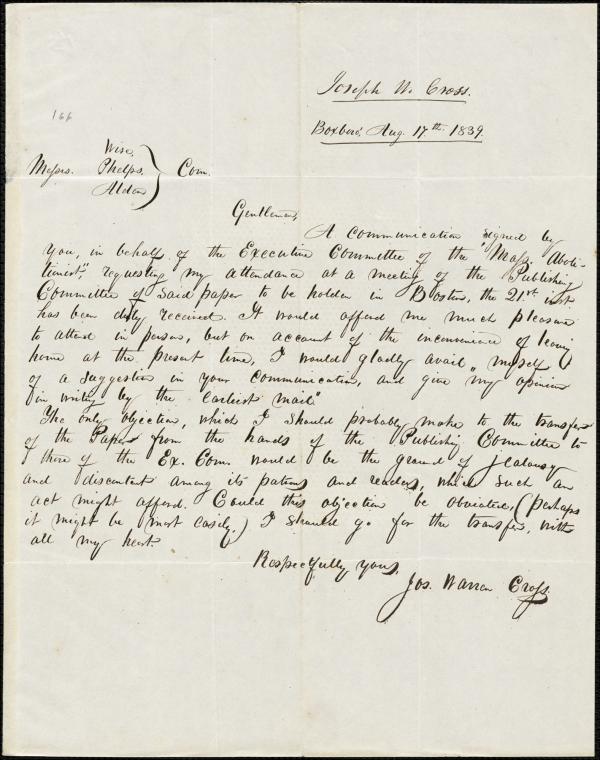 Joseph W. Cross.
Boxboro', Aug. 17th. 1839.
166
Wise,
Messrs. Phelps, Com.
Alden
Gentlemen,
A communication signed by
you, in behalf of the Executive Committee of the "Mass. Aboli-
tionist," requesting my attendance at a meeting of the Publishing
Committee of said paper to be holden in Boston, the 21st inst.
has been duly received. It would afford me much pleasure
to attend in person, but on account of the inconvenience of leaving
home at the present time, I would gladly avail myself
of a suggestion in your communication, and give my opinion
"in writing by the earliest mail."
The only objection, which I should probably make to the transfer
of the Paper from the hands of the Publishing Committee to
those of the Ex. Com. would be the ground of jealousy
and discontent among its patrons and readers, which such an
act might afford. Could this objection be obviated, (perhaps
it might be most easily,) I should go for the transfer, with
all my heart.
Respectfully yours,
Jos. Warren Cross.